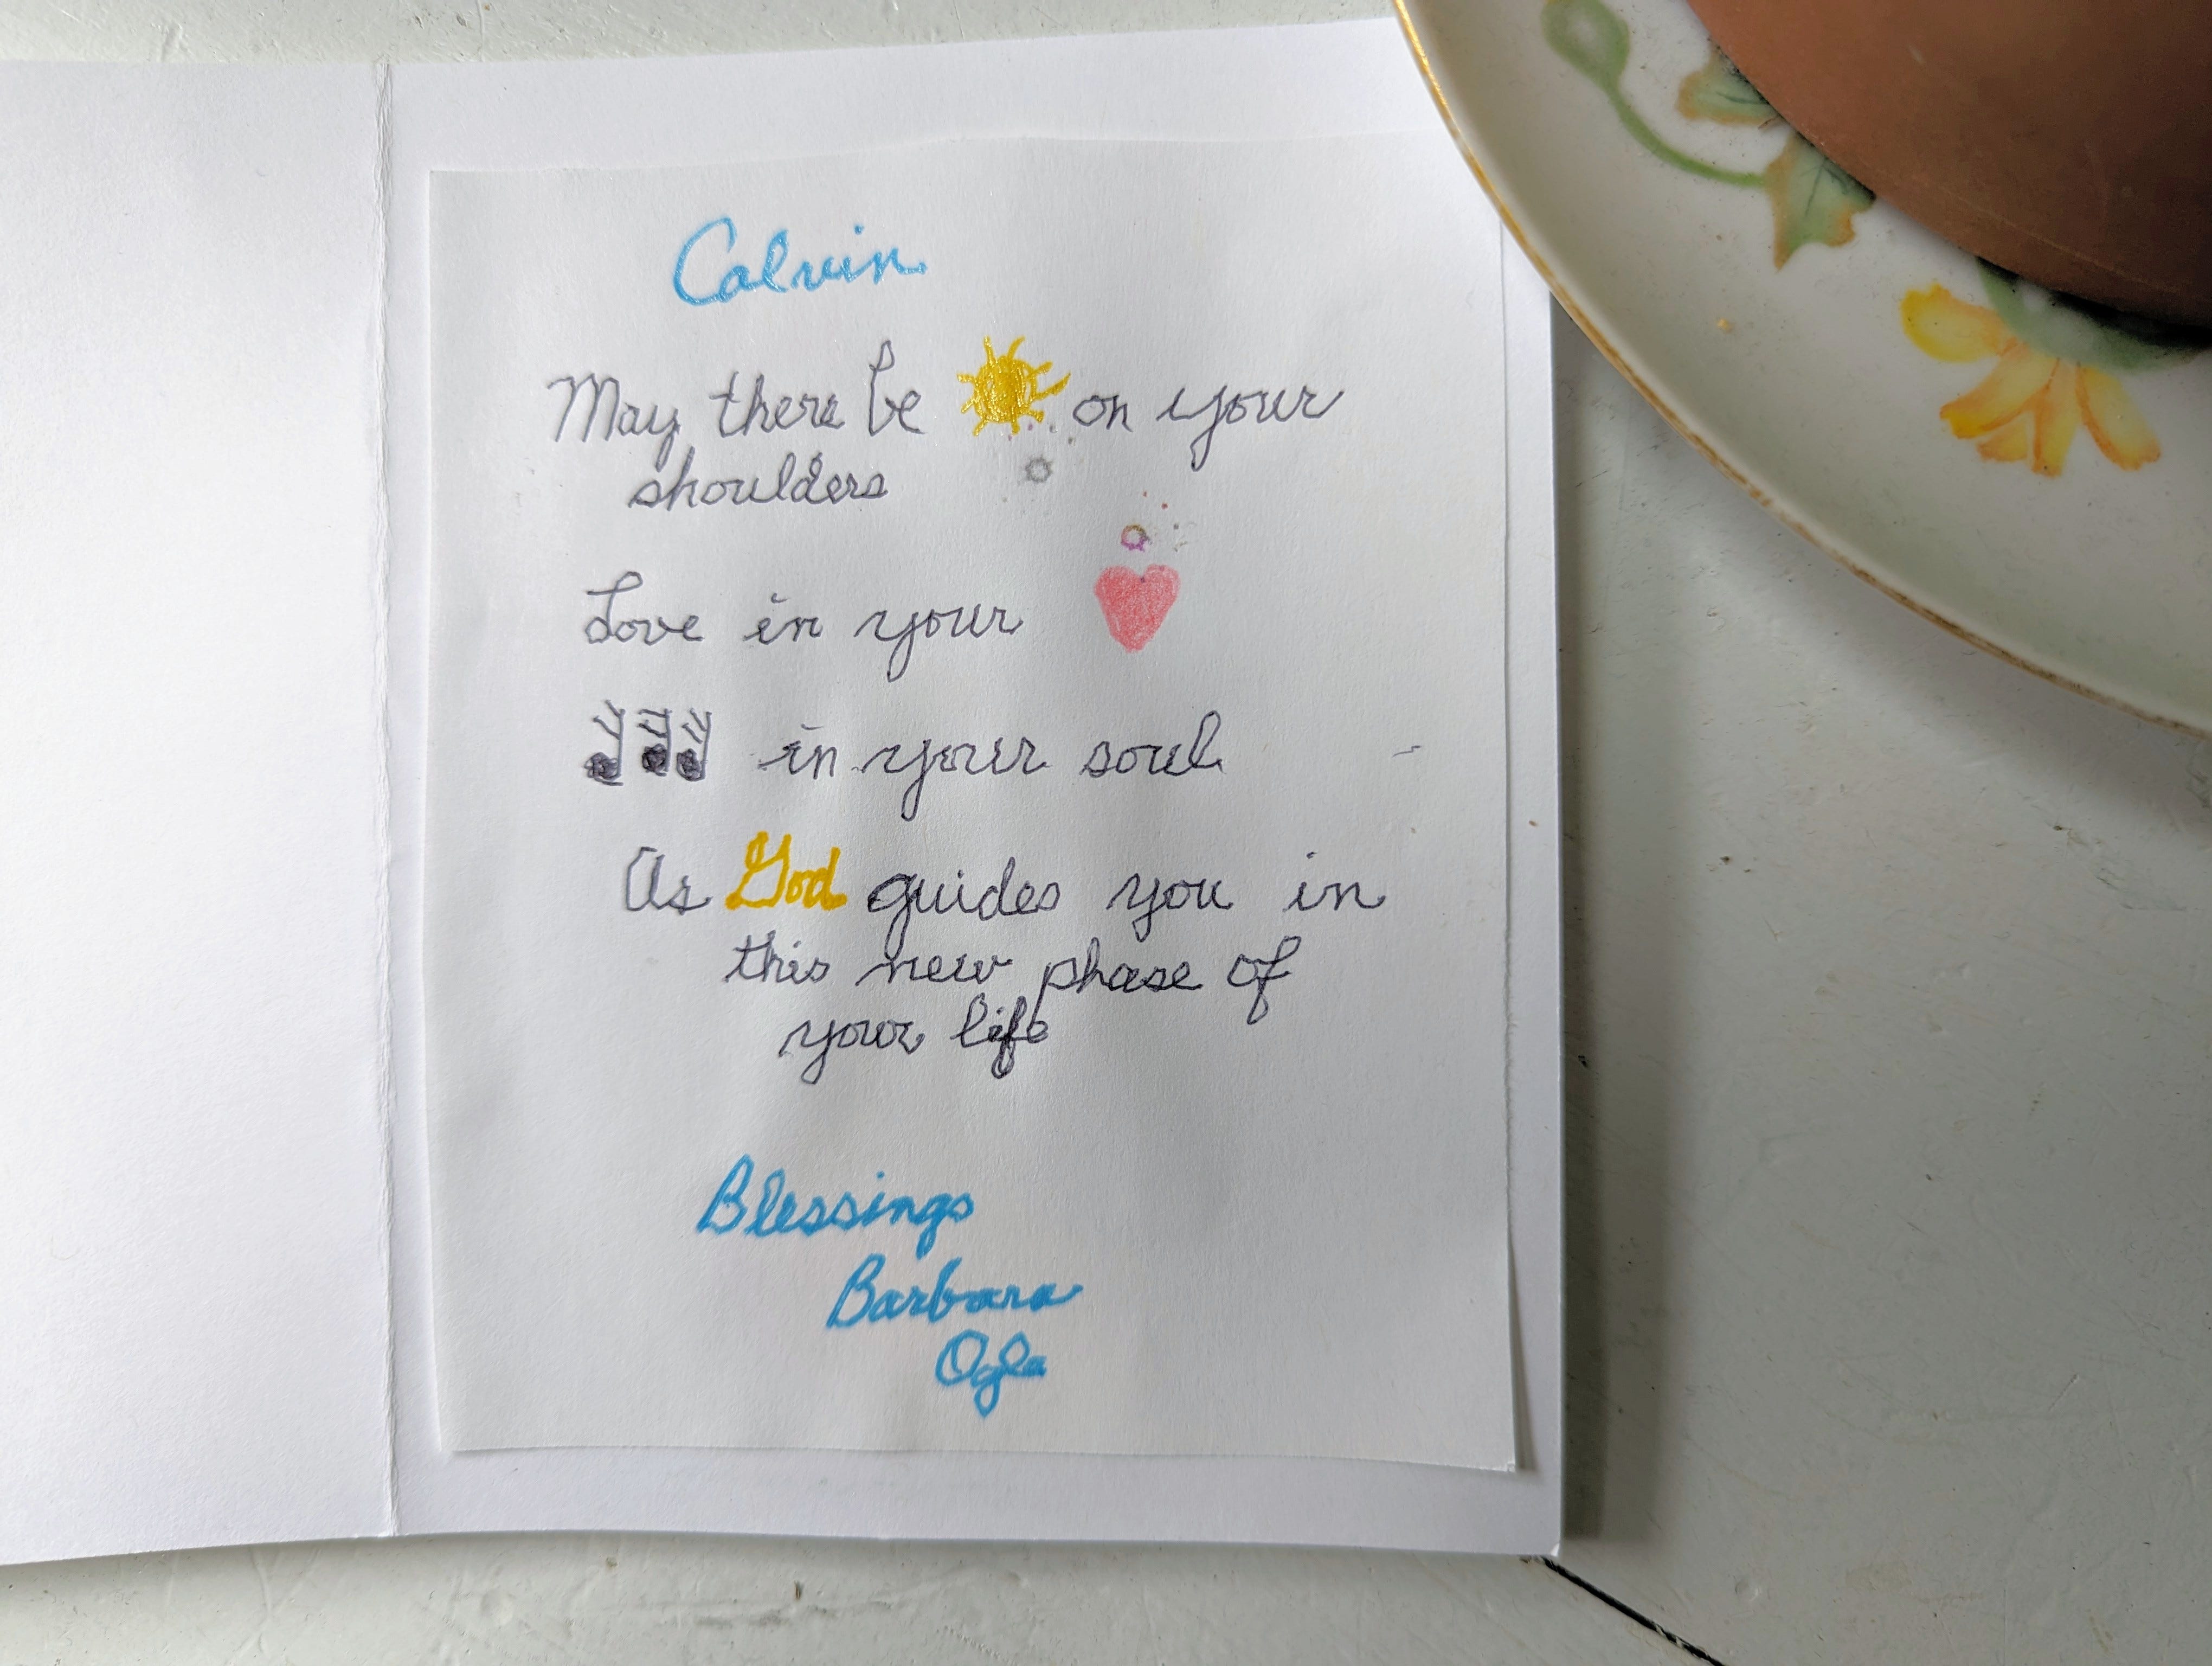 Calvin
May there be on your
shoulders
Love in your
in your soul
As God guides you in
this new phase of
your life
Blessings
Barbara
Ogle